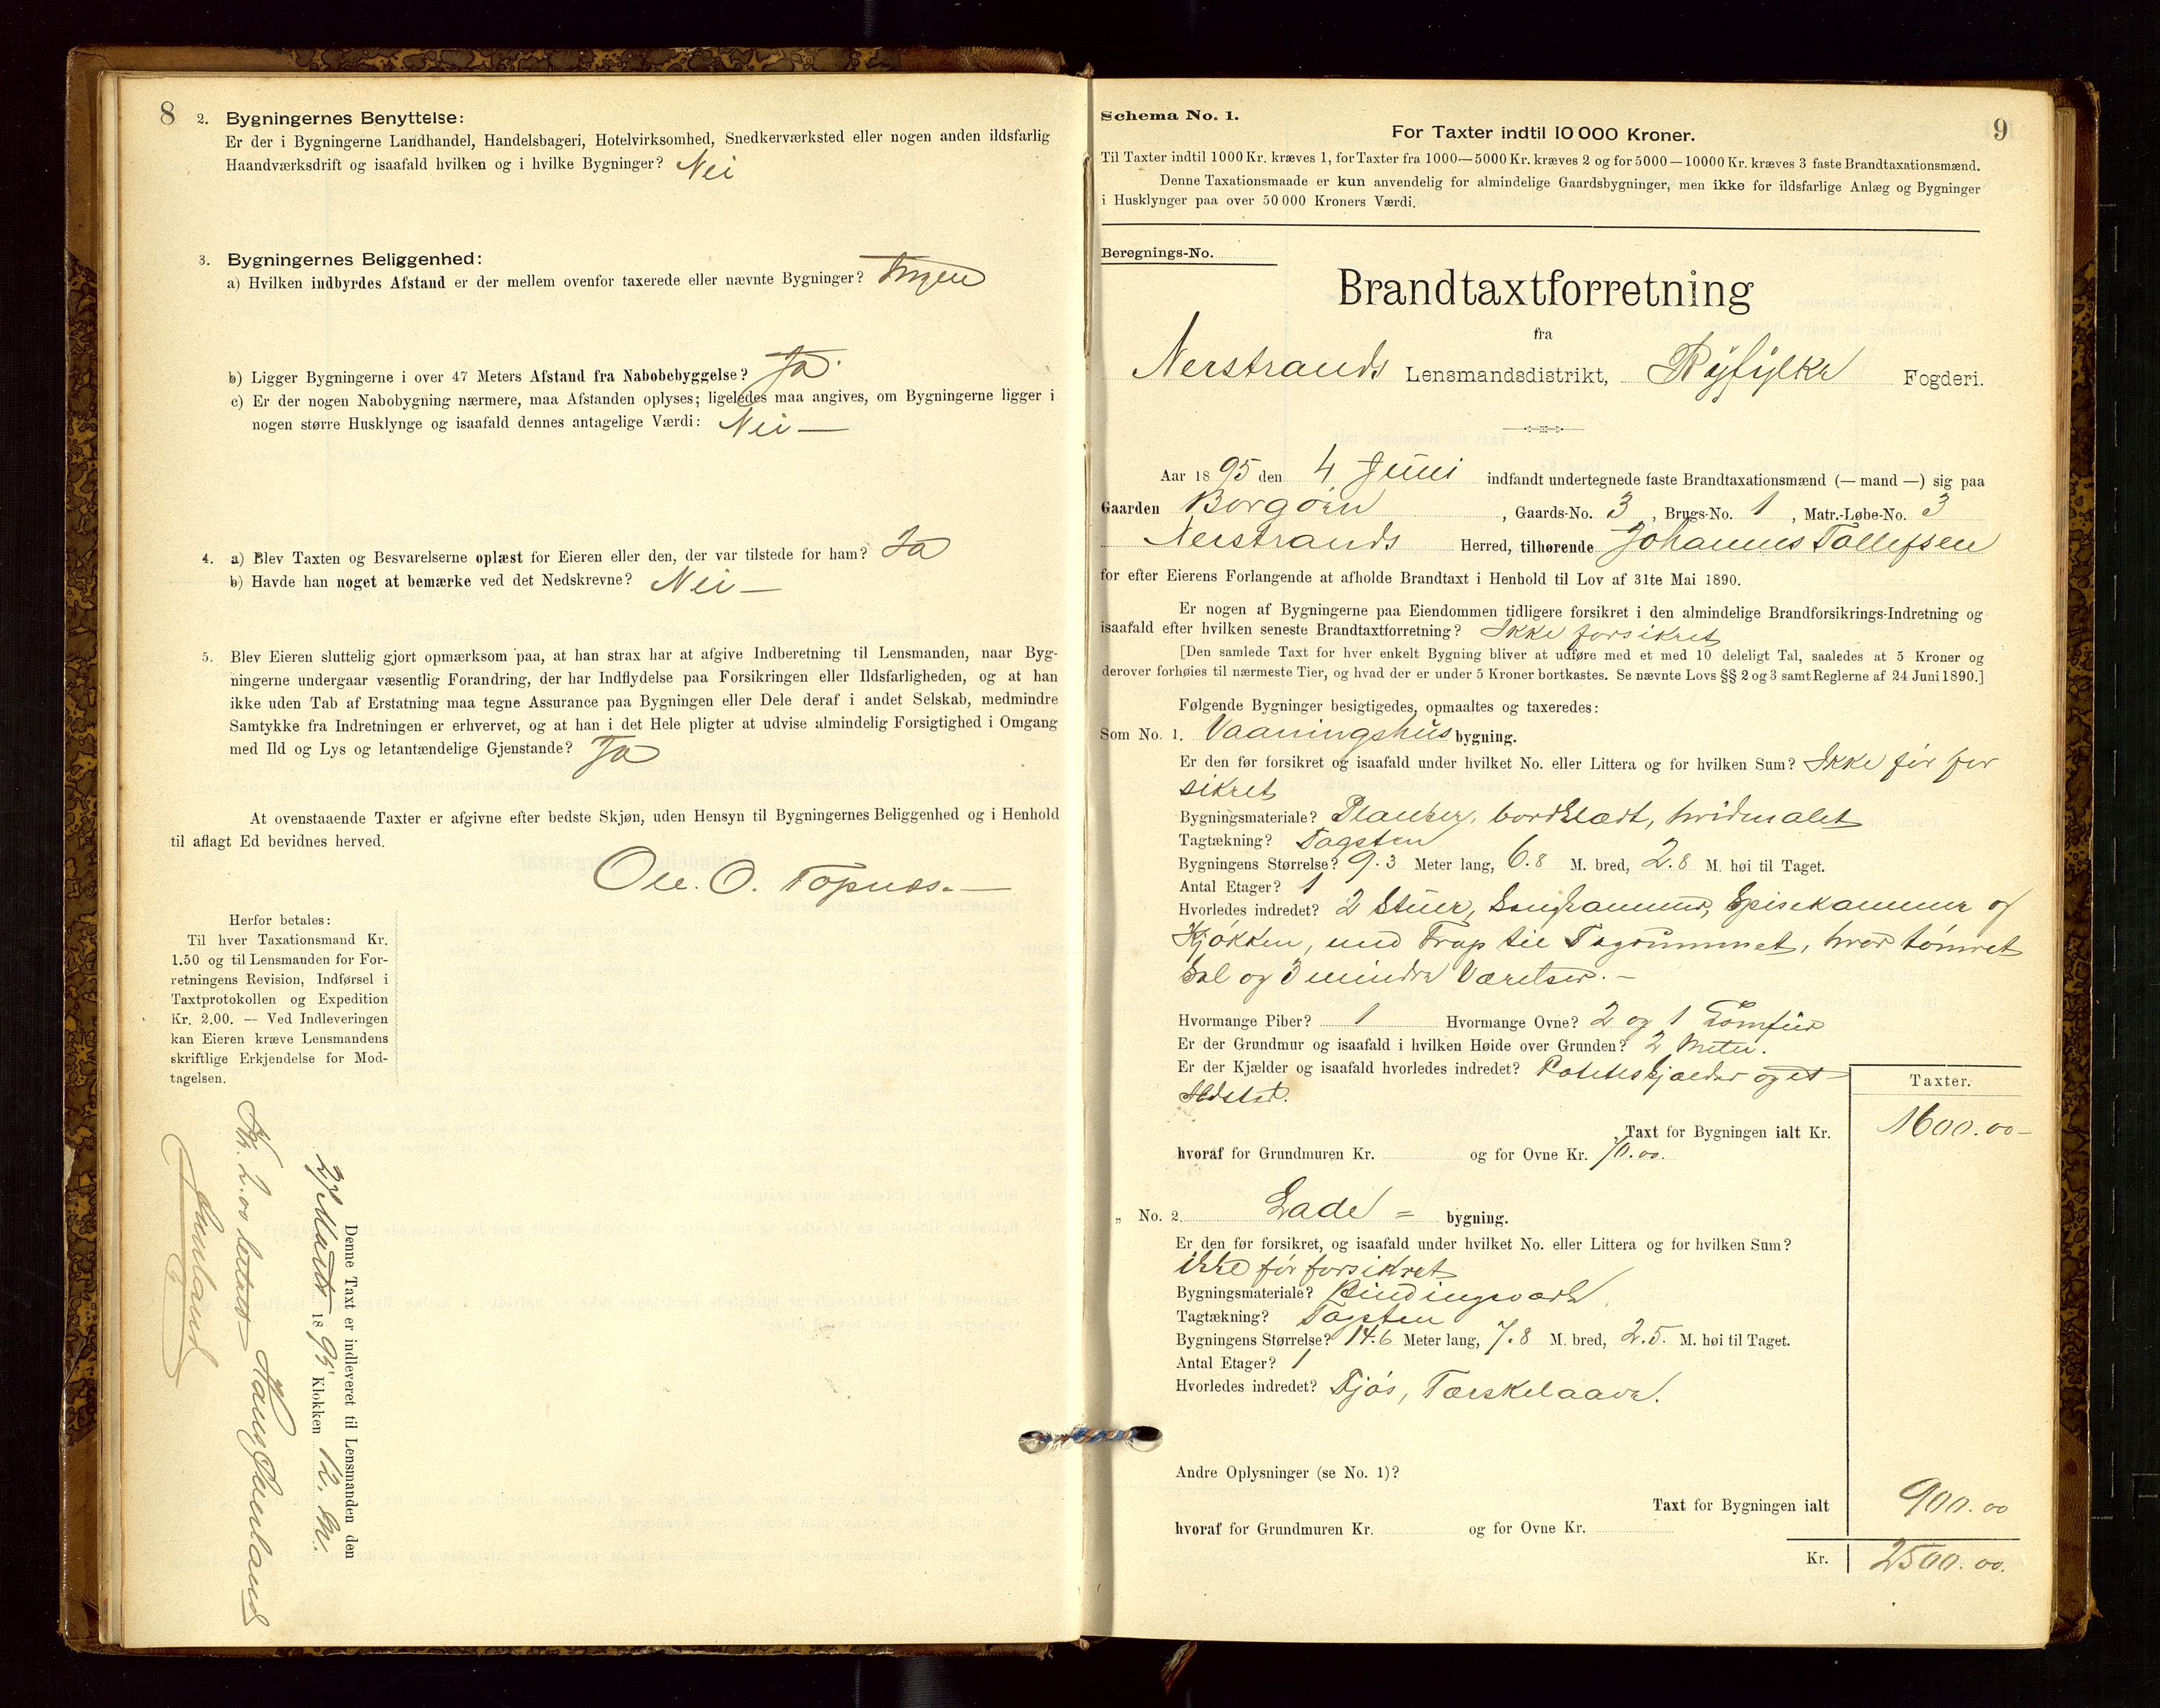 8
2. Bygningernes Benyttelse:
Er der i Bygningerne Landhandel, Handelsbageri, Hotelvirksomhed, Snedkerværksted eller nogen anden ildsfarlig
Haandværksdrift og isaafald hvilken og i hvilke Bygninger? Nei
3. Bygningernes Beliggenhed:
a) Hvilken indbyrdes Afstand er der mellem ovenfor taxerede eller nævnte Bygninger? Ingen
b) Ligger Bygningerne i over 47 Meters Afstand fra Nabobebyggelse? Ja.
c) Er der nogen Nabobygning nærmere, maa Afstanden oplyses; ligeledes maa angives, om Bygningerne ligger i
nogen større Husklynge og isaafald dennes antagelige Værdi: Nei —
4. a) Blev Taxten og Besvarelserne oplæst for Eieren eller den, der var tilstede for ham? Ja
b) Havde han noget at bemærke ved det Nedskrevne? Nei —
5. Blev Eieren sluttelig gjort opmærksom paa, at han strax har at afgive Indberetning til Lensmanden, naar Byg-
ningerne undergaar væsentlig Forandring, der har Indflydelse paa Forsikringen eller Ildsfarligheden, og at han
ikke uden Tab af Erstatning maa tegne Assurance paa Bygningen eller Dele deraf i andet Selskab, medmindre
Samtykke fra Indretningen er erhvervet, og at han i det Hele pligter at udvise almindelig Forsigtighed i Omgang
med Ild og Lys og letantændelige Gjenstande? Ja
At ovenstaaende Taxter er afgivne efter bedste Skjøn, uden Hensyn til Bygningernes Beliggenhed og i Henhold
til aflagt Ed bevidnes herved.
Ole. O. Topnæs. —
Herfor betales:
Til hver Taxationsmand Kr.
1.50 og til Lensmanden for For-
retningens Revision, Indførsel i
Taxtprotokollen og Expedition
Kr. 2.00. — Ved Indleveringen
kan Eieren kræve Lensmandens
skriftlige Erkjendelse for Mod-
tagelsen.
Denne Taxt er indleveret til Lensmanden den
27 Marts 1895 Klokken 12. M.
Kr. 2.00 betalt
9
Schema No. 1.
For Taxter indtil 10 000 Kroner.
Til Taxter indtil 1000 Kr. kræves 1, for Taxter fra 1000—5000 Kr. kræves 2 og for 5000—10000 Kr. kræves 3 faste Brandtaxationsmænd.
Denne Taxationsmaade er kun anvendelig for almindelige Gaardsbygninger, men ikke for ildsfarlige Anlæg og Bygninger
i Husklynger paa over 50 000 Kroners Værdi.
Beregnings-No.
Brandtaxtforretning
fra
Nerstrands Lensmandsdistrikt, Ryfylke Fogderi.
Aar 1895 den 4 Juni indfandt undertegnede faste Brandtaxationsmænd (— mand —) sig paa
Gaarden Borgøen, Gaards-No. 3, Brugs-No. 1, Matr.-Løbe-No. 3
Nerstrands Herred, tilhørende Johannes Tollefsen
for efter Eierens Forlangende at afholde Brandtaxt i Henhold til Lov af 31te Mai 1890.
Er nogen af Bygningerne paa Eiendommen tidligere forsikret i den almindelige Brandforsikrings-Indretning og
isaafald efter hvilken seneste Brandtaxtforretning? Ikke forsikret
[Den samlede Taxt for hver enkelt Bygning bliver at udføre med et med 10 deleligt Tal, saaledes at 5 Kroner og
derover forhøies til nærmeste Tier, og hvad der er under 5 Kroner bortkastes. Se nævnte Lovs §§ 2 og 3 samt Reglerne af 24 Juni 1890.]
Følgende Bygninger besigtigedes, opmaaltes og taxeredes:
Som No. 1. Vaaningshus bygning.
Er den før forsikret og isaafald under hvilket No. eller Littera og for hvilken Sum? Ikke før for
sikret
Bygningsmateriale? Planker, bordklædt, hvidmalet
Tagtækning? Tagsten
Bygningens Størrelse? 9.3 Meter lang, 6.8 M. bred, 2.8 M. høi til Taget.
Antal Etager? 1
Hvorledes indredet? 2 Stuer, Sengkammer, Spisekammer og
Kjøkken, med Trap til Tagrummet, hvor tømret
Sal og 3 mindre Værelser. —
Hvormange Piber? 1 Hvormange Ovne? 2 og 1 Komfur
Er der Grundmur og isaafald i hvilken Høide over Grunden? 2 Meter.
Er der Kjælder og isaafald hvorledes indredet? Potetkjælder og et
Ildsted.
Taxter.
Taxt for Bygningen ialt Kr. 1600.00 —
hvoraf for Grundmuren Kr. og for Ovne Kr. 70.00.
„ No. 2. Lade = bygning.
Er den før forsikret, og isaafald under hvilket No. eller Littera og for hvilken Sum?
ikke før forsikret
Bygningsmateriale? Bindingsværk
Tagtækning? Tagsten
Bygningens Størrelse? 14.6 Meter lang, 7.8 M. bred, 2.5. M. høi til Taget.
Antal Etager? 1
Hvorledes indredet? Fjøs, Tærskelaave.
Andre Oplysninger (se No. 1)?
Taxt for Bygningen ialt 900.00
hvoraf for Grundmuren Kr. og for Ovne Kr.
Kr. 2500.00.